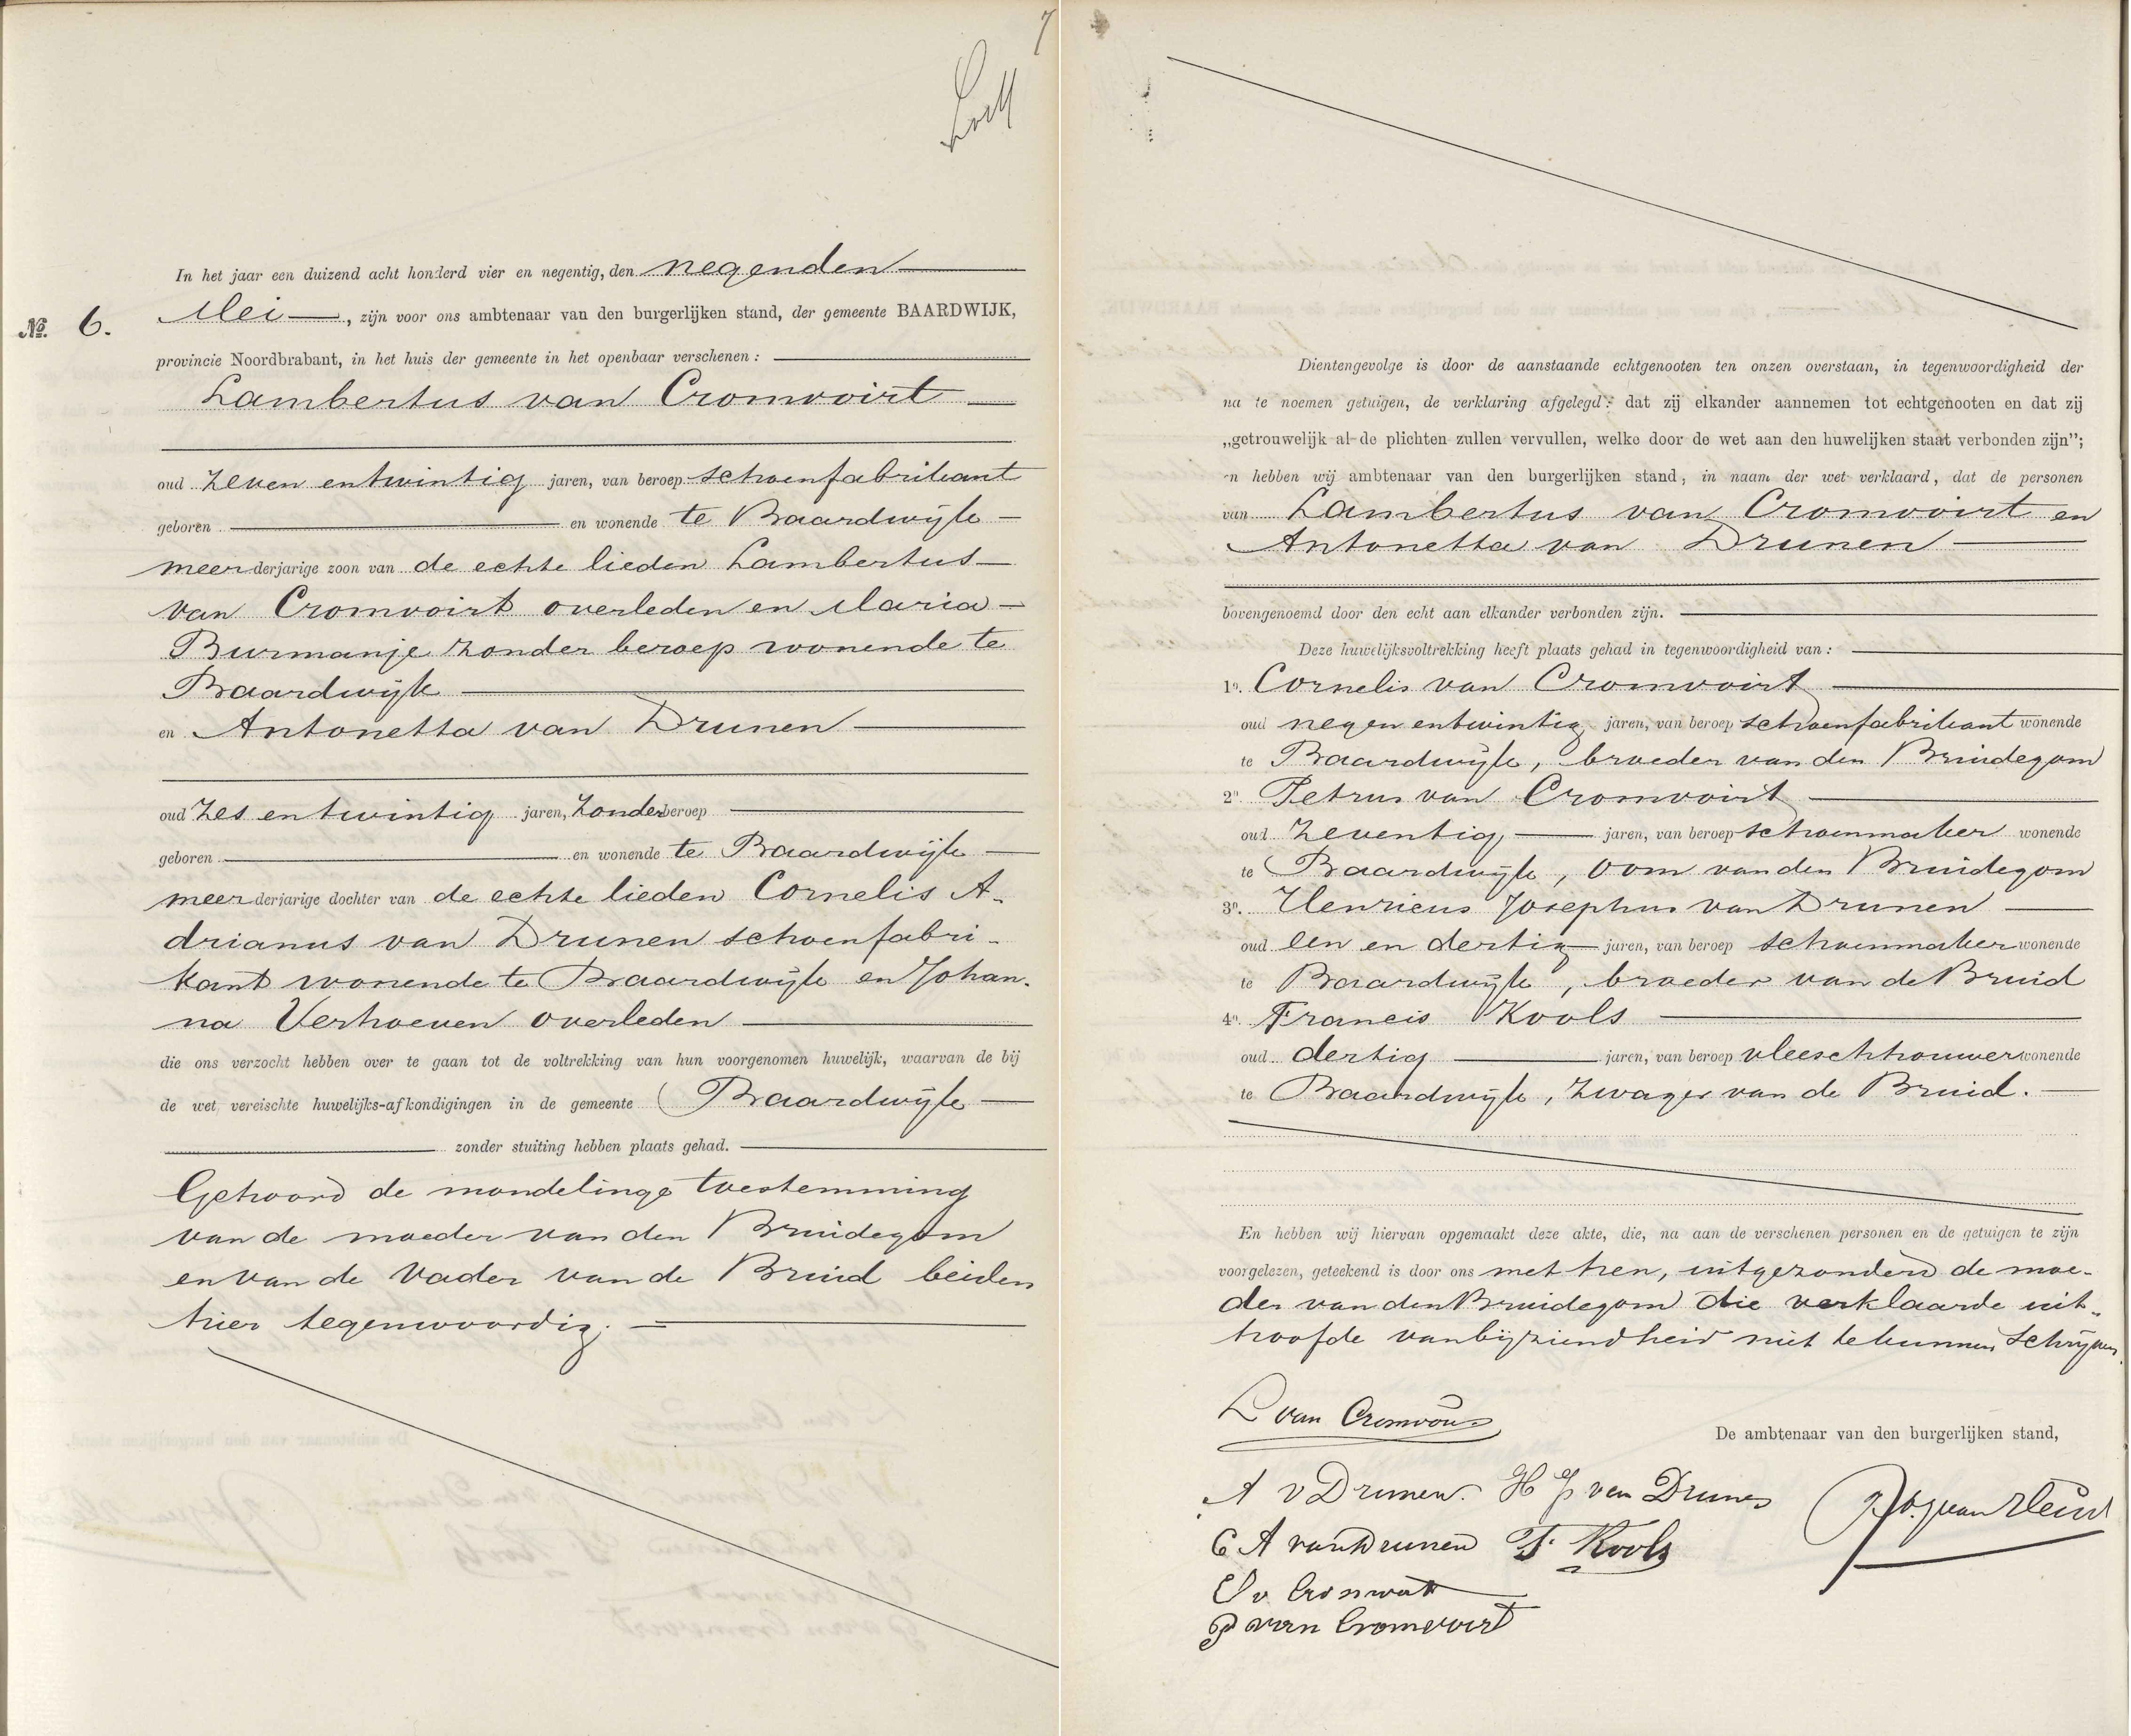 7
In het jaar een duizend acht honderd vier en negentig, den negenden
No. 6. Mei, zijn voor ons ambtenaar van den burgerlijken stand, der gemeente BAARDWIJK,
provincie Noordbrabant, in het huis der gemeente in het openbaar verschenen:
Lambertus van Cromvoirt
oud zeven en twintig jaren, van beroep schoenfabrikant
geboren en wonende te Baardwijk
meerderjarige zoon van de echte lieden Lambertus
van Cromvoirt overleden en Maria
Burmanje zonder beroep wonende te
Baardwijk
en Antonetta van Drunen
oud zes en twintig jaren, zonder beroep
geboren en wonende te Baardwijk
meerderjarige dochter van de echte lieden Cornelis A-
drianus van Drunen schoenfabri-
kant wonende te Baardwijk en Johan-
na Verhoeven overleden
die ons verzocht hebben over te gaan tot de voltrekking van hun voorgenomen huwelijk, waarvan de bij
de wet vereischte huwelijks-afkondigingen in de gemeente Baardwijk
zonder stuiting hebben plaats gehad.
Gehoord de mondelinge toestemming
van de moeder van den Bruidegom
en van de Vader van de Bruid beiden
hier tegenwoordig.
Dientengevolge is door de aanstaande echtgenooten ten onzen overstaan, in tegenwoordigheid der
na te noemen getuigen, de verklaring afgelegd: dat zij elkander aannemen tot echtgenooten en dat zij
„getrouwelijk al de plichten zullen vervullen, welke door de wet aan den huwelijken staat verbonden zijn";
en hebben wij ambtenaar van den burgerlijken stand, in naam der wet verklaard, dat de personen
van Lambertus van Cromvoirt en
Antonetta van Drunen
bovengenoemd door den echt aan elkander verbonden zijn.
Deze huwelijksvoltrekking heeft plaats gehad in tegenwoordigheid van:
1o. Cornelis van Cromvoirt
oud negen en twintig jaren, van beroep schoenfabrikant wonende
te Baardwijk, broeder van den Bruidegom
2o. Petrus van Cromvoirt
oud zeventig jaren, van beroep schoenmaker wonende
te Baardwijk, oom van den Bruidegom
3o. Henricus Josephus van Drunen
oud een en dertig jaren, van beroep schoenmaker wonende
te Baardwijk, broeder van de Bruid
4o. Francis Kools
oud dertig jaren, van beroep vleeschhouwer wonende
te Baardwijk, zwager van de Bruid.
En hebben wij hiervan opgemaakt deze akte, die, na aan de verschenen personen en de getuigen te zijn
voorgelezen, geteekend is door ons met hen, uitgezonderd de moe-
der van den Bruidegom die verklaarde uit-
hoofde van bijziendheid niet te kunnen schrijven.
L van Cromvoirt
De ambtenaar van den burgerlijken stand,
A v Drunen. H J van Drunen
C A van Drunen F. Kools
C v Cromvoirt
P van Cromvoirt